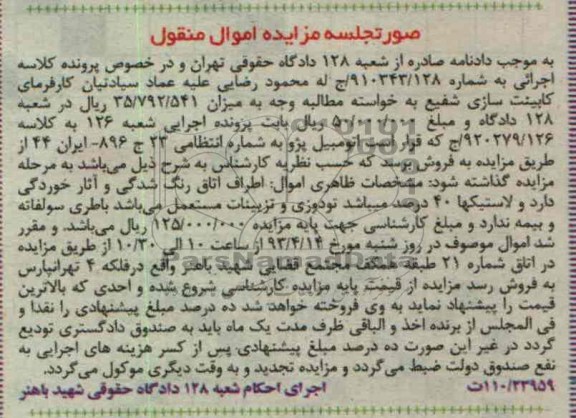 صورتجلسه مزایده اموال منقول
به موجب دادنامه صادره از شعبه ۱۲۸ دادگاه حقوقی تهران و در خصوص پرونده کلاسه
اجرائی به شماره ۹۱۰۳۴۳/۱۲۸/ج له محمود رضایی علیه عماد سیادتیان کارفرمای
کابینت سازی شفیع به خواسته مطالبه وجه به میزان ۳۵/۷۹۲/۵۴۱ ریال در شعبه
۱۲۸ دادگاه و مبلغ ۵۰/۰۰۰/۰۰۰ ریال بابت پرونده اجرایی شعبه ۱۲۶ به کلاسه
۹۲۰۲۷۹/۱۲۶/ج که قرار است اتومبیل پژو به شماره انتظامی ۲۳ ج ۸۹۶- ایران ۴۴ از
طریق مزایده به فروش برسد که حسب نظریه کارشناس به شرح ذیل می‌باشد به مرحله
مزایده گذاشته شود: مشخصات ظاهری اموال: اطراف اتاق رنگ شدگی و آثار خوردگی
دارد و لاستیکها ۴۰ درصد میباشد تودوزی و تزیینات مستعمل می‌باشد باطری سولفاته
و بیمه ندارد و مبلغ کارشناسی جهت پایه مزایده ۱۲۵/۰۰۰/۰۰۰ ریال می‌باشد. و مقرر
شد اموال موصوف در روز شنبه مورخ ۹۳/۴/۱۴ از ساعت ۱۰ الی ۱۰/۳۰ از طریق مزایده
در اتاق شماره ۲۱ طبقه همکف مجتمع قضایی شهید باهنر واقع درفلکه ۴ تهرانپارس
به فروش رسد مزایده از قیمت پایه مزایده کارشناسی شروع شده و احدی که بالاترین
قیمت را پیشنهاد نماید به وی فروخته خواهد شد ده درصد مبلغ پیشنهادی را نقدا و
فی المجلس از برنده اخذ و الباقی ظرف مدت یک ماه باید به صندوق دادگستری تودیع
گردد در غیر این صورت ده درصد مبلغ پیشنهادی پس از کسر هزینه های اجرایی به
نفع صندوق دولت ضبط می‌گردد و مزایده تجدید و به وقت دیگری موکول می‌گردد.
۱۱۰/۲۳۹۵۹ت اجرای احکام شعبه ۱۲۸ دادگاه حقوقی شهید باهنر